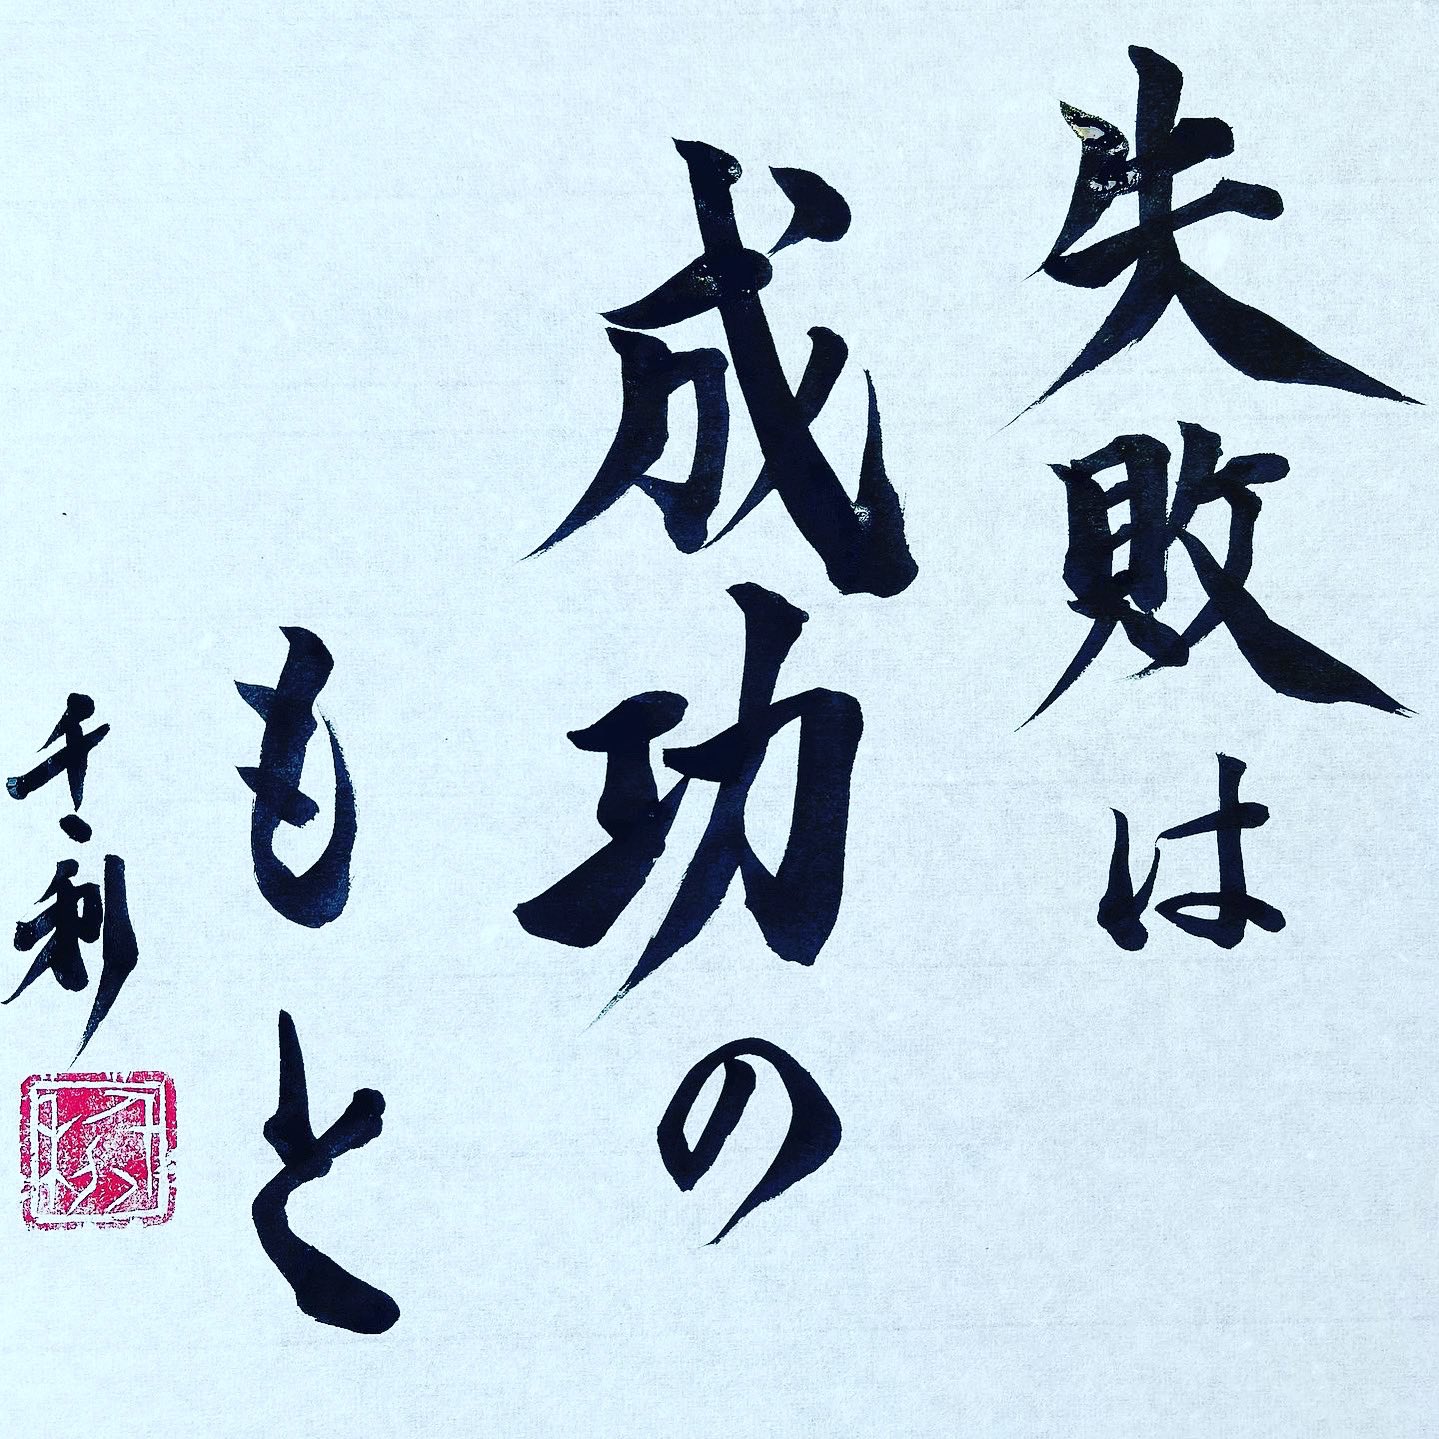 失敗は
成功の
もと